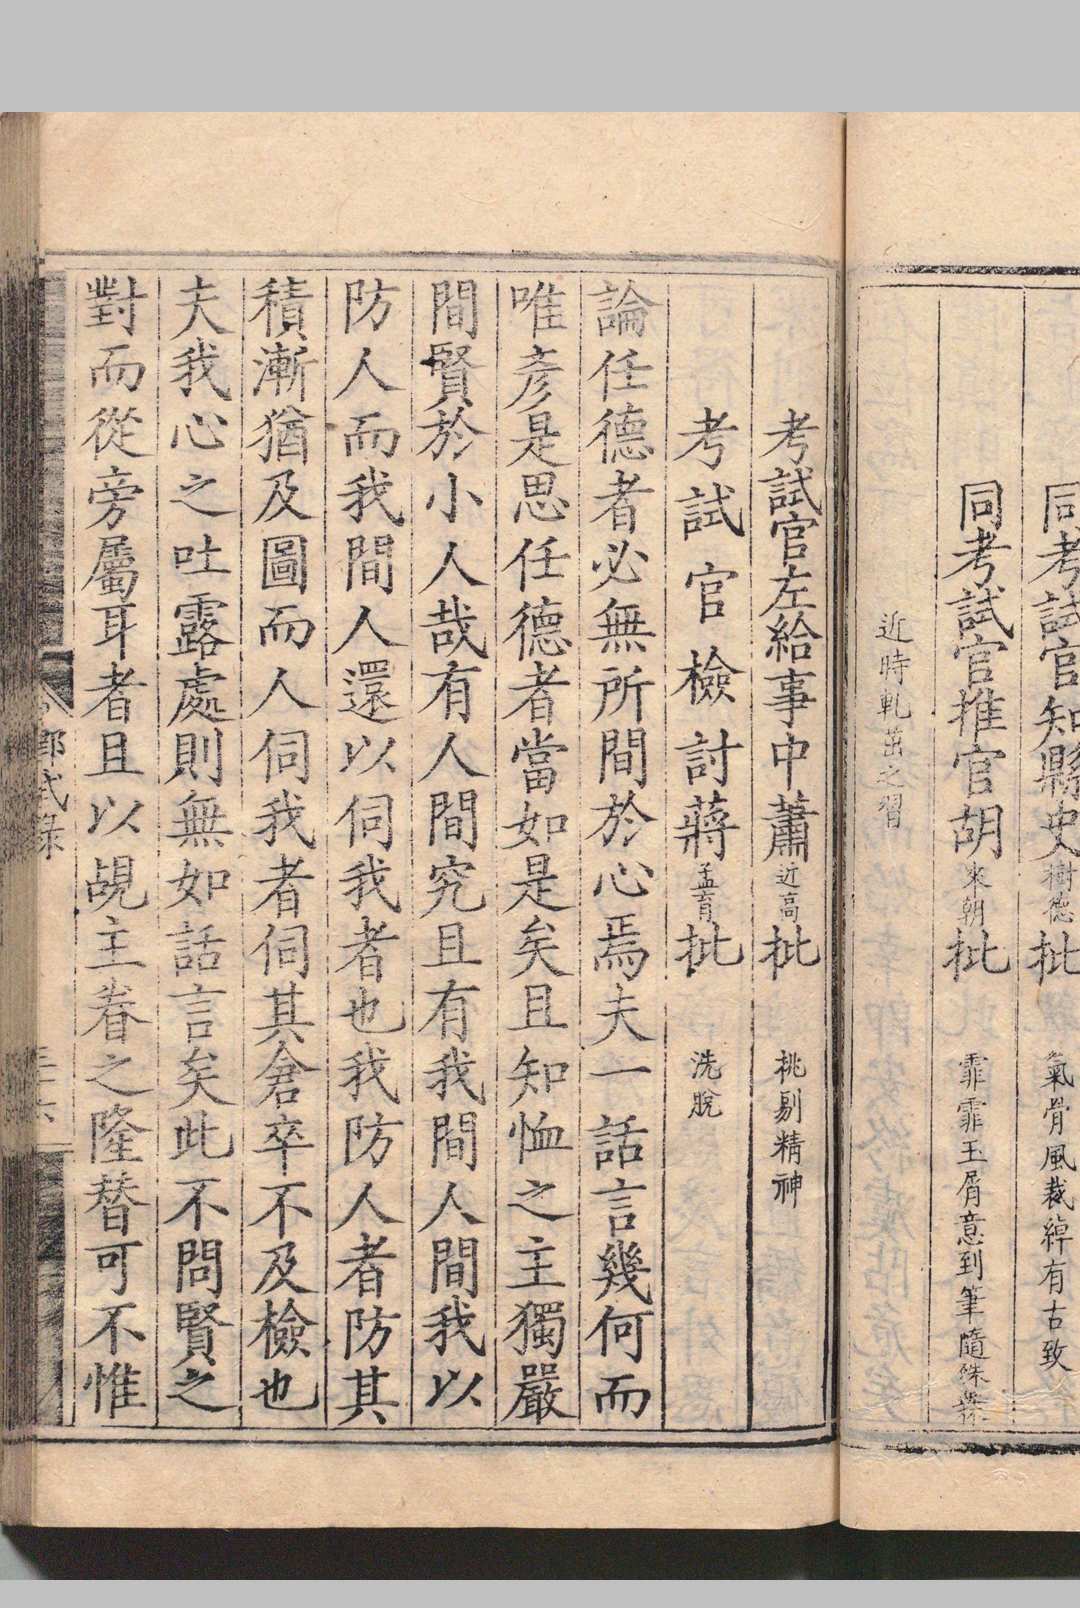 同考試官知縣史樹德批　氣骨風裁綽有古致
同考試官推官胡來朝批　霏霏玉屑意到筆隨殊無
近時軋茁之習
考試官左給事中蕭近高批　挑剔精神
考試官檢討蔣孟育批　洗脫
論任德者必無所間於心焉夫一話言幾何而
唯彥是思任德者當如是矣且知恤之主獨嚴
間賢於小人哉有人間究且有我間人間我以
防人而我間人還以伺我者也我防人者防其
積漸猶及圖而人伺我者伺其倉卒不及檢也
夫我心之吐露處則無如話言矣此不問賢之
對而從旁屬耳者且以覘主眷之隆替可不惟
式錄